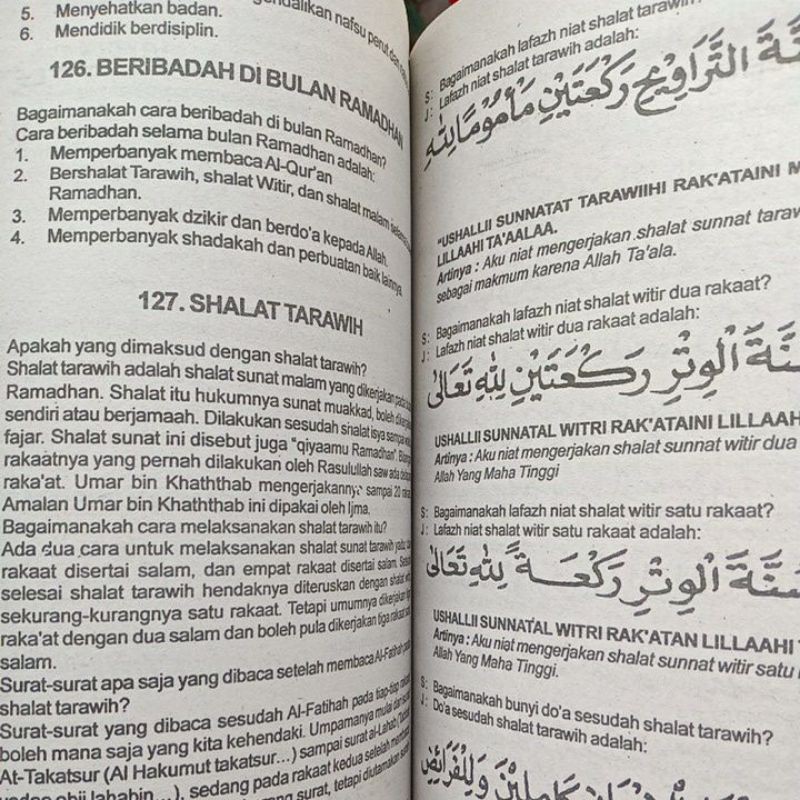 5. Menyehatkan badan.
6. Mendidik berdisiplin.
nafsu perut dan
126. BERIBADAH DI BULAN RAMADHAN
Bagaimanakah cara beribadah di bulan Ramadhan?
Cara beribadah selama bulan Ramadhan adalah:
1. Memperbanyak membaca Al-Qur'an
2. Bershalat Tarawih, shalat Witir, dan shalat malam
Ramadhan.
3. Memperbanyak dzikir dan berdo'a kepada Allah.
4. Memperbanyak shadakah dan perbuatan baik lainnya.
127. SHALAT TARAWIH
Apakah yang dimaksud dengan shalat tarawih?
Shalat tarawih adalah shalat sunat malam yang dikerjakan
Ramadhan. Shalat itu hukumnya sunat muakkad, boleh
sendiri atau berjamaah. Dilakukan sesudah shalat isya sampai
fajar. Shalat sunat ini disebut juga "qiyaamu Ramadhan".
rakaatnya yang pernah dilakukan oleh Rasulullah saw ada
raka'at. Umar bin Khaththab mengerjakannya sampai 20
Amalan Umar bin Khaththab ini dipakai oleh Ijma.
Bagaimanakah cara melaksanakan shalat tarawih itu?
Ada dua cara untuk melaksanakan shalat sunat tarawih
rakaat disertai salam, dan empat rakaat disertai salam.
selesai shalat tarawih hendaknya diteruskan dengan shalat
sekurang-kurangnya satu rakaat. Tetapi umumnya dikerjakan
raka'at dengan dua salam dan boleh pula dikerjakan tiga rakaat
salam.
Surat-surat apa saja yang dibaca setelah membaca Al-Fatihah
shalat tarawih?
Surat-surat yang dibaca sesudah Al-Fatihah pada tiap-tiap
boleh mana saja yang kita kehendaki. Umpamanya mulai dari
At-Takatsur (Al Hakumut takatsur...) sampai surat al-Lahab
lahabin...), sedang pada rakaat kedua selelah
surat, tetapi diutamakan
S: Bagaimanakah lafazh niat shalat tarawih
J: Lafazh niat shalat tarawih adalah:
التَّرَاوِيْحِ رَكْعَتَيْنِ مَأْمُوْمًا لِلّٰهِ
"USHALLII SUNNATAT TARAWIIHI RAK'ATAINI
LILLAAHI TA'AALAA.
Artinya : Aku niat mengerjakan shalat sunnat
sebagai makmum karena Allah Ta'ala.
S: Bagaimanakah lafazh niat shalat witir dua rakaat?
J: Lafazh niat shalat witir dua rakaat adalah:
الْوِتْرِ رَكْعَتَيْنِ لِلّٰهِ تَعَالَى
USHALLII SUNNATAL WITRI RAK'ATAINI LILLAAHI
Artinya : Aku niat mengerjakan shalat sunnat witir dua
Allah Yang Maha Tinggi
S: Bagaimanakah lafazh niat shalat witir satu rakaat?
J: Lafazh niat shalat witir satu rakaat adalah:
الْوِتْرِ رَكْعَةً لِلّٰهِ تَعَالَى
USHALLII SUNNATAL WITRI RAK'ATAN LILLAAHI
Artinya : Aku niat mengerjakan shalat sunnat witir satu
Allah Yang Maha Tinggi.
S: Bagaimanakah bunyi do'a sesudah shalat tarawih?
J: Do'a sesudah shalat tarawih adalah:
كَامِلِيْنَ وَلِلْفَرَائِضِ